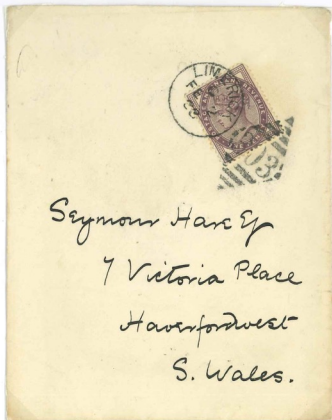 LIMERICK
303
Seymour Hare Esq
7 Victoria Place
Haverfordwest
S. Wales.